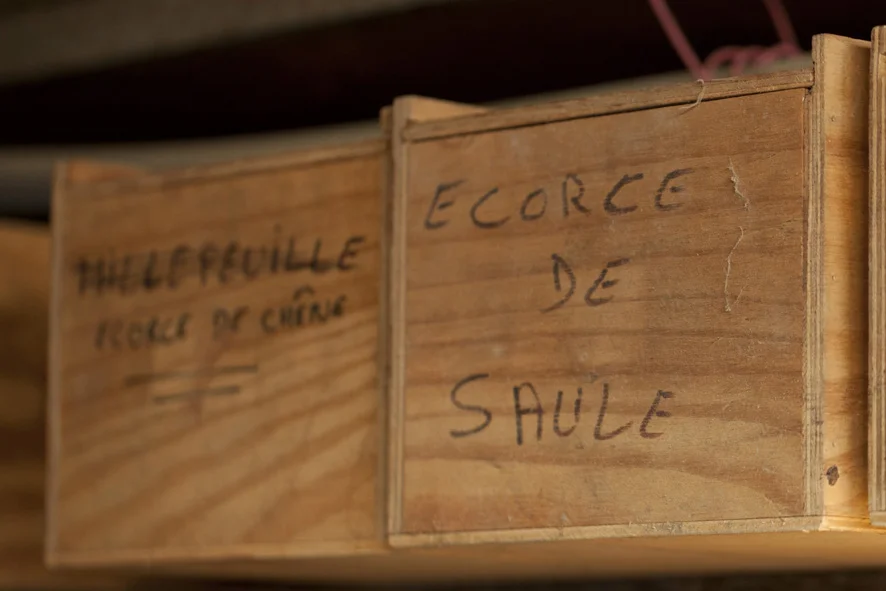 MILLEFEUILLE
ECORCE DE CHÊNE
ECORCE
DE
SAULE